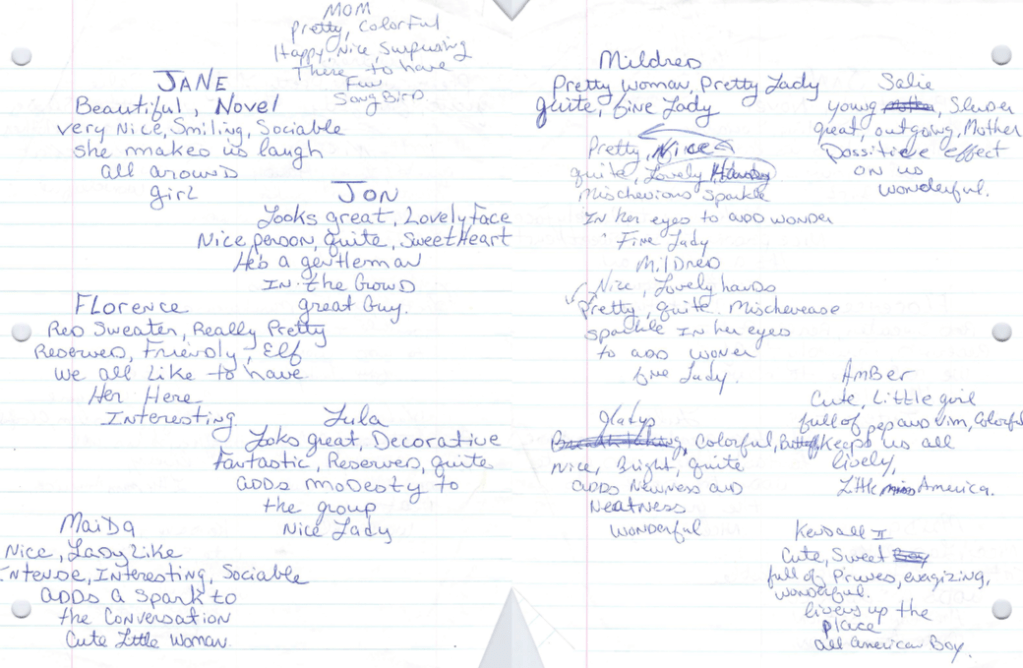 MOM
Pretty, Colorful
Happy, Nice, Surprising
There to have
Fun
Song Bird
JANE
Beautiful, Novel
very Nice, Smiling, Sociable
she makes us laugh
all around
girl
JON
Looks great, Lovely Face
Nice person, quite, SweetHeart
He's a gentleman
In the Crowd
great Guy.
Florence
Red Sweater, Really Pretty
Reserved, Friendly, Elf
we all Like to have
Her Here
Interesting
Lula
Looks great, Decorative
Fantastic, Reserved, quite
adds modesty to
the group
Nice Lady
Maida
Nice, Lady Like
Intense, Interesting, Sociable
adds a spark to
the Conversation
Cute Little Woman.
Mildred
Pretty Woman, Pretty Lady
quite, fine Lady
Pretty, Nice
quite, Lovely
Mischevious Sparkle
In her eyes to add wonder
Fine Lady
Mildred
Nice, Lovely hands
Pretty, quite. Mischevease
sparkle In her eyes
to add woner
fine Lady.
Gladys
Breathtaking, Colorful,
Nice, Bright, quite
adds Newness and
Neatness
wonderful
Salie
young
great, outgoing, Mother
Possitive effect
on us
wonderful.
Amber
Cute, Little girl
full of pep and vim, Colorful
Keeps us all
lively,
Little miss America.
Kendall II
Cute, Sweet Boy
full of Prunes, enagizing,
wonderful.
livens up the
place
all american Boy.